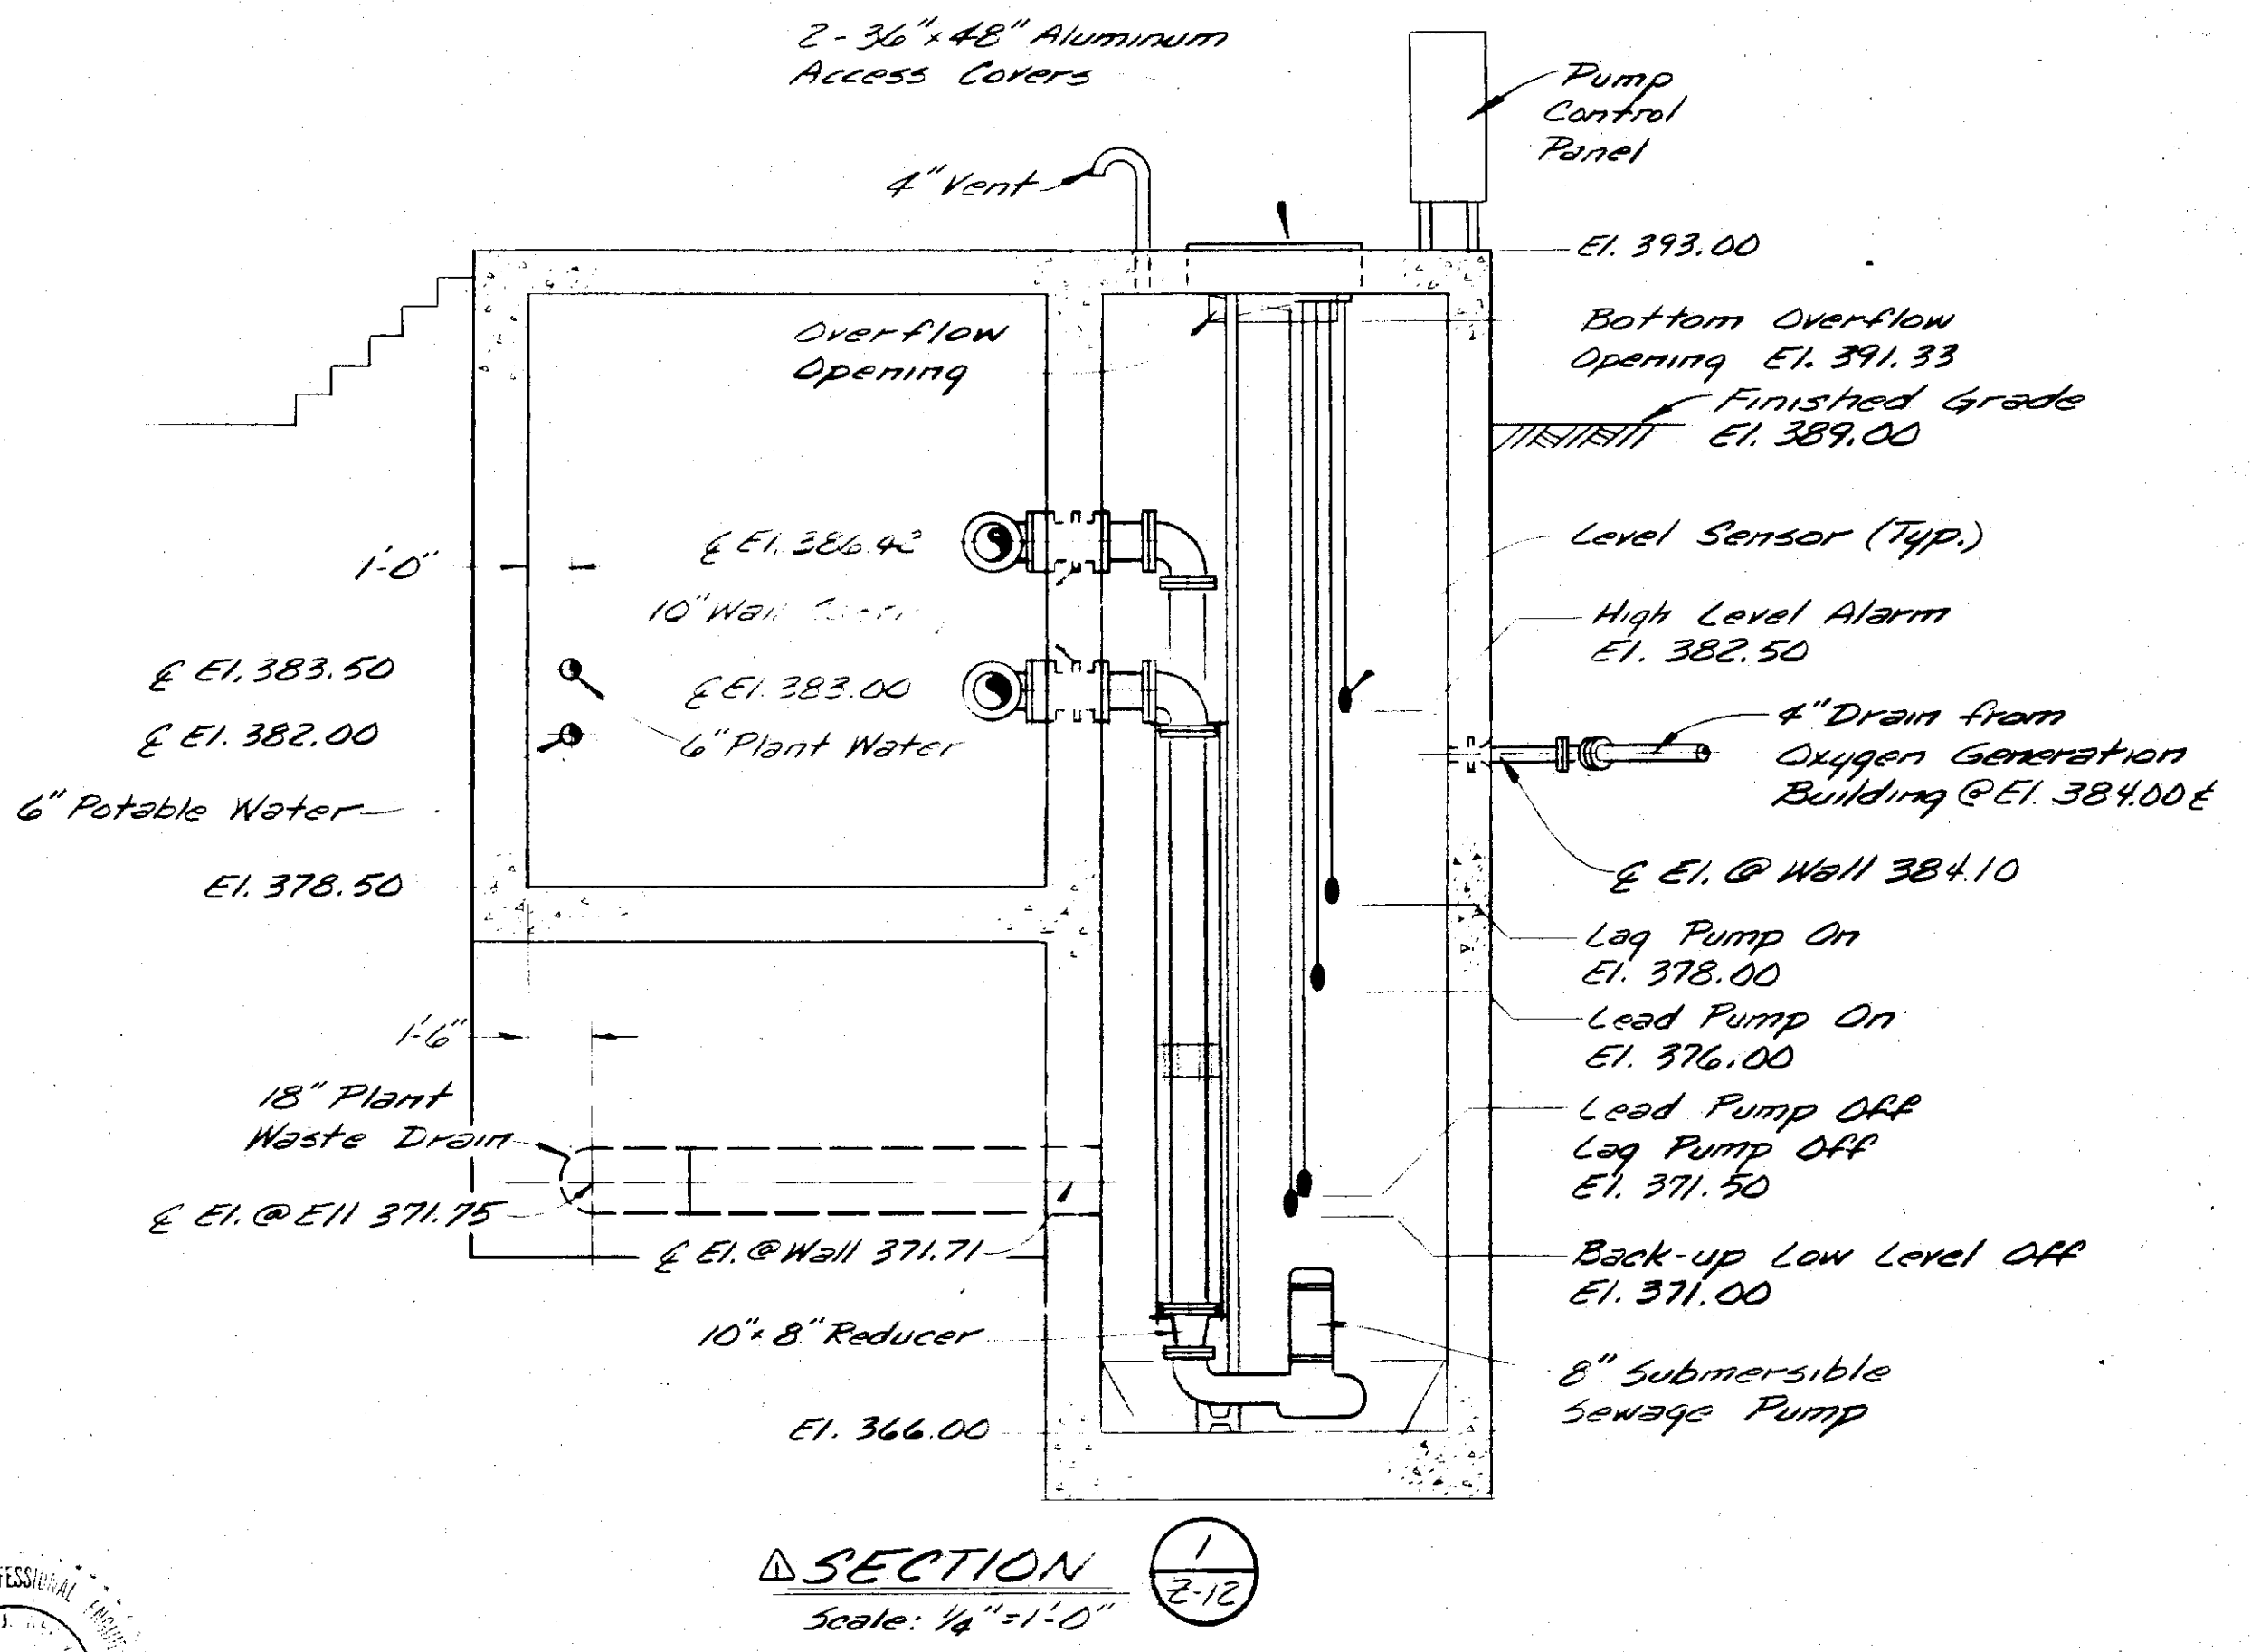 2-36"x48" Aluminum
Access Covers
Pump
Control
Panel
4" Vent
El. 393.00
Overflow
Opening
Bottom Overflow
Opening El. 391.33
Finished Grade
El. 389.00
1'-0"
℄ El. 386.42
Level Sensor (Typ.)
10" Wall
High Level Alarm
El. 382.50
℄ El. 383.50
℄ El. 383.00
℄ El. 382.00
6" Plant Water
4" Drain from
Oxygen Generation
Building @ El. 384.00 ±
6" Potable Water
El. 378.50
℄ El. @ Wall 384.10
Lag Pump On
El. 378.00
Lead Pump On
El. 376.00
1'-6"
18" Plant
Waste Drain
Lead Pump Off
Lag Pump Off
El. 371.50
℄ El. @ Ell 371.75
℄ El. @ Wall 371.71
Back-up Low Level Off
El. 371.00
10"x8" Reducer
8" Submersible
Sewage Pump
El. 366.00
1 SECTION
Scale: 1/4"=1'-0"
1
Z-12